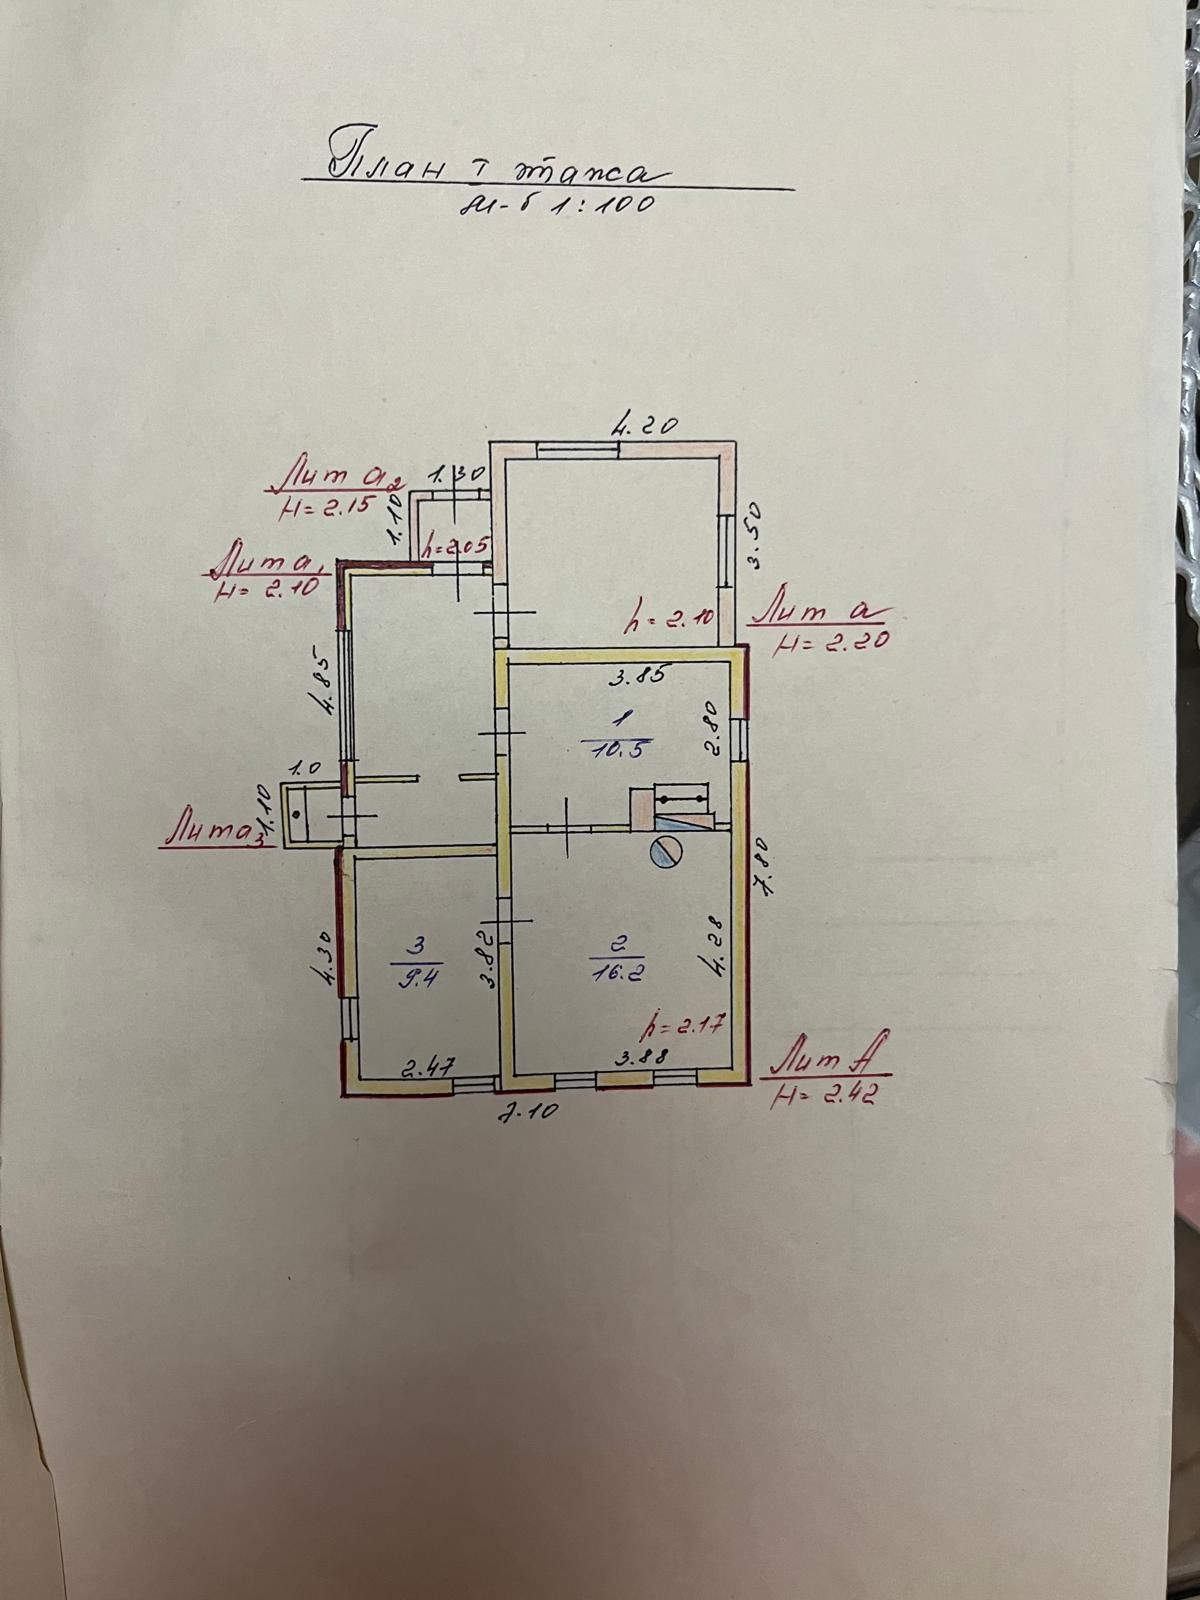 План I этажа
м-б 1:100
4.20
Лит а2
H=2.15
1.30
1.10
h=2.05
Лит а1
H=2.10
3.50
h=2.10
Лит а
H=2.20
4.85
3.85
1
10.5
2.80
1.0
1.10
Лит а3
7.80
4.30
3
9.4
3.82
2
16.2
4.28
h=2.17
2.47
3.88
7.10
Лит А
H=2.42